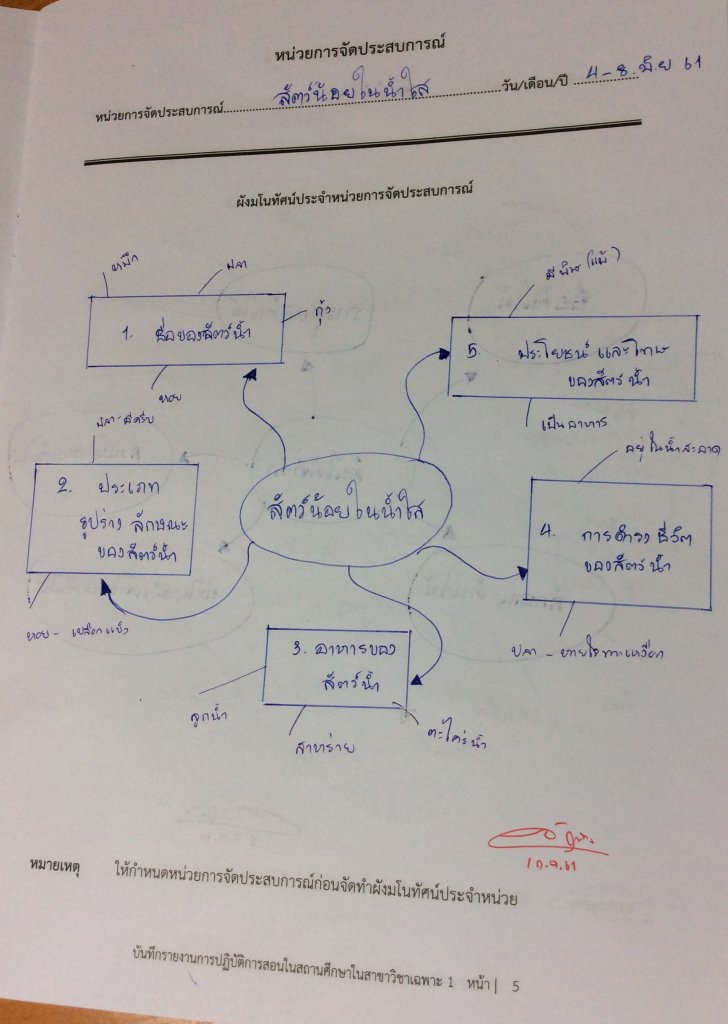 หน่วยการจัดประสบการณ์
หน่วยการจัดประสบการณ์ สัตว์น้อยในน้ำใส วัน/เดือน/ปี 4-8 มิ.ย 61
ผังมโนทัศน์ประจำหน่วยการจัดประสบการณ์
หมึก
ปลา
กุ้ง
1. ชื่อของสัตว์น้ำ
หอย
มีพิษ (แพ้)
5. ประโยชน์ และโทษ
ของสัตว์น้ำ
เป็นอาหาร
ปลา - มีครีบ
2. ประเภท
รูปร่าง ลักษณะ
ของสัตว์น้ำ
หอย - เปลือกแข็ง
สัตว์น้อยในน้ำใส
อยู่ในน้ำสะอาด
4. การดำรงชีวิต
ของสัตว์น้ำ
ปลา - หายใจทางเหงือก
3. อาหารของ
สัตว์น้ำ
ลูกน้ำ
สาหร่าย
ตะไคร่น้ำ
หมายเหตุ ให้กำหนดหน่วยการจัดประสบการณ์ก่อนจัดทำผังมโนทัศน์ประจำหน่วย
บันทึกรายงานการปฏิบัติการสอนในสถานศึกษาในสาขาวิชาเฉพาะ 1 หน้า | 5